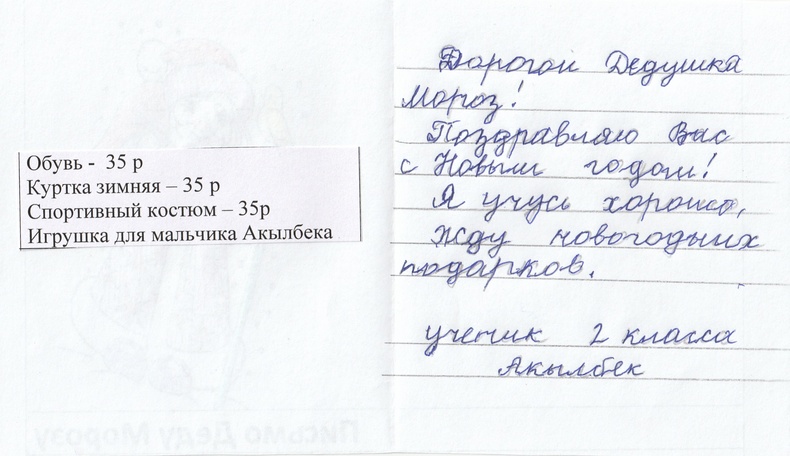 Обувь - 35 р
Куртка зимняя – 35 р
Спортивный костюм – 35р
Игрушка для мальчика Акылбека
Дорогой Дедушка
Мороз!
Поздравляю Вас
с Новым годом!
Я учусь хорошо,
жду новогодних
подарков.
ученик 2 класса
Акылбек
Письмо Деду Морозу